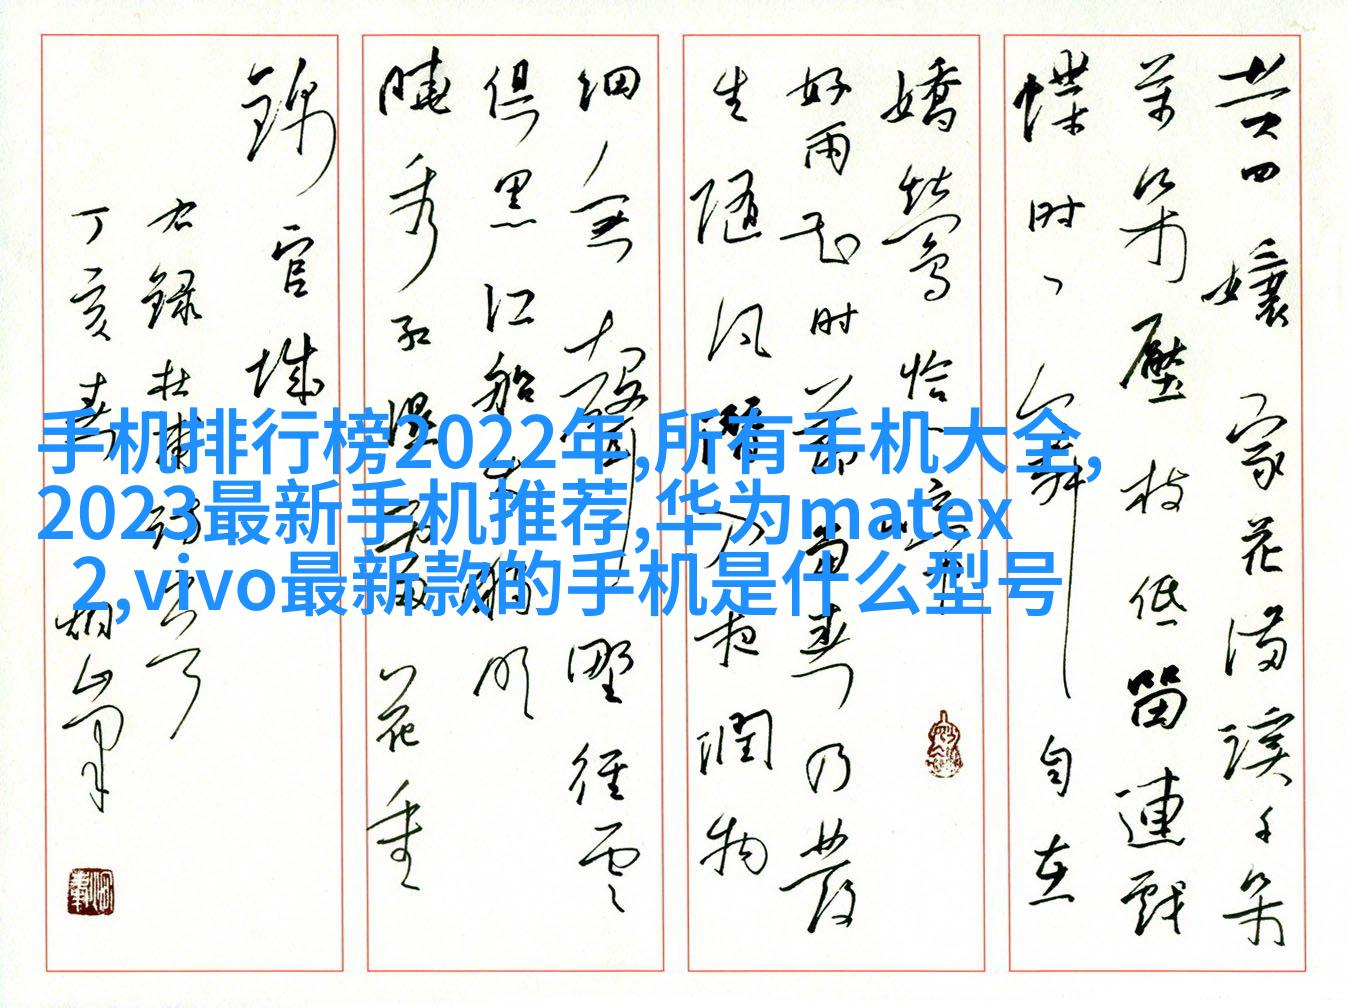 黄四孃家花满溪千朵
万朵壓枝低留連戏
蝶时丶舞自在
嬌莺恰丶啼
好雨知时节当春乃发
生随风潜入夜润物
细无声野径雲
俱黑江船火独明
晓看红湿处花重
锦官城
右录杜甫诗二首
丁亥春
手机排行榜2022年,所有手机大全,
2023最新手机推荐,华为matex
2,vivo最新款的手机是什么型号